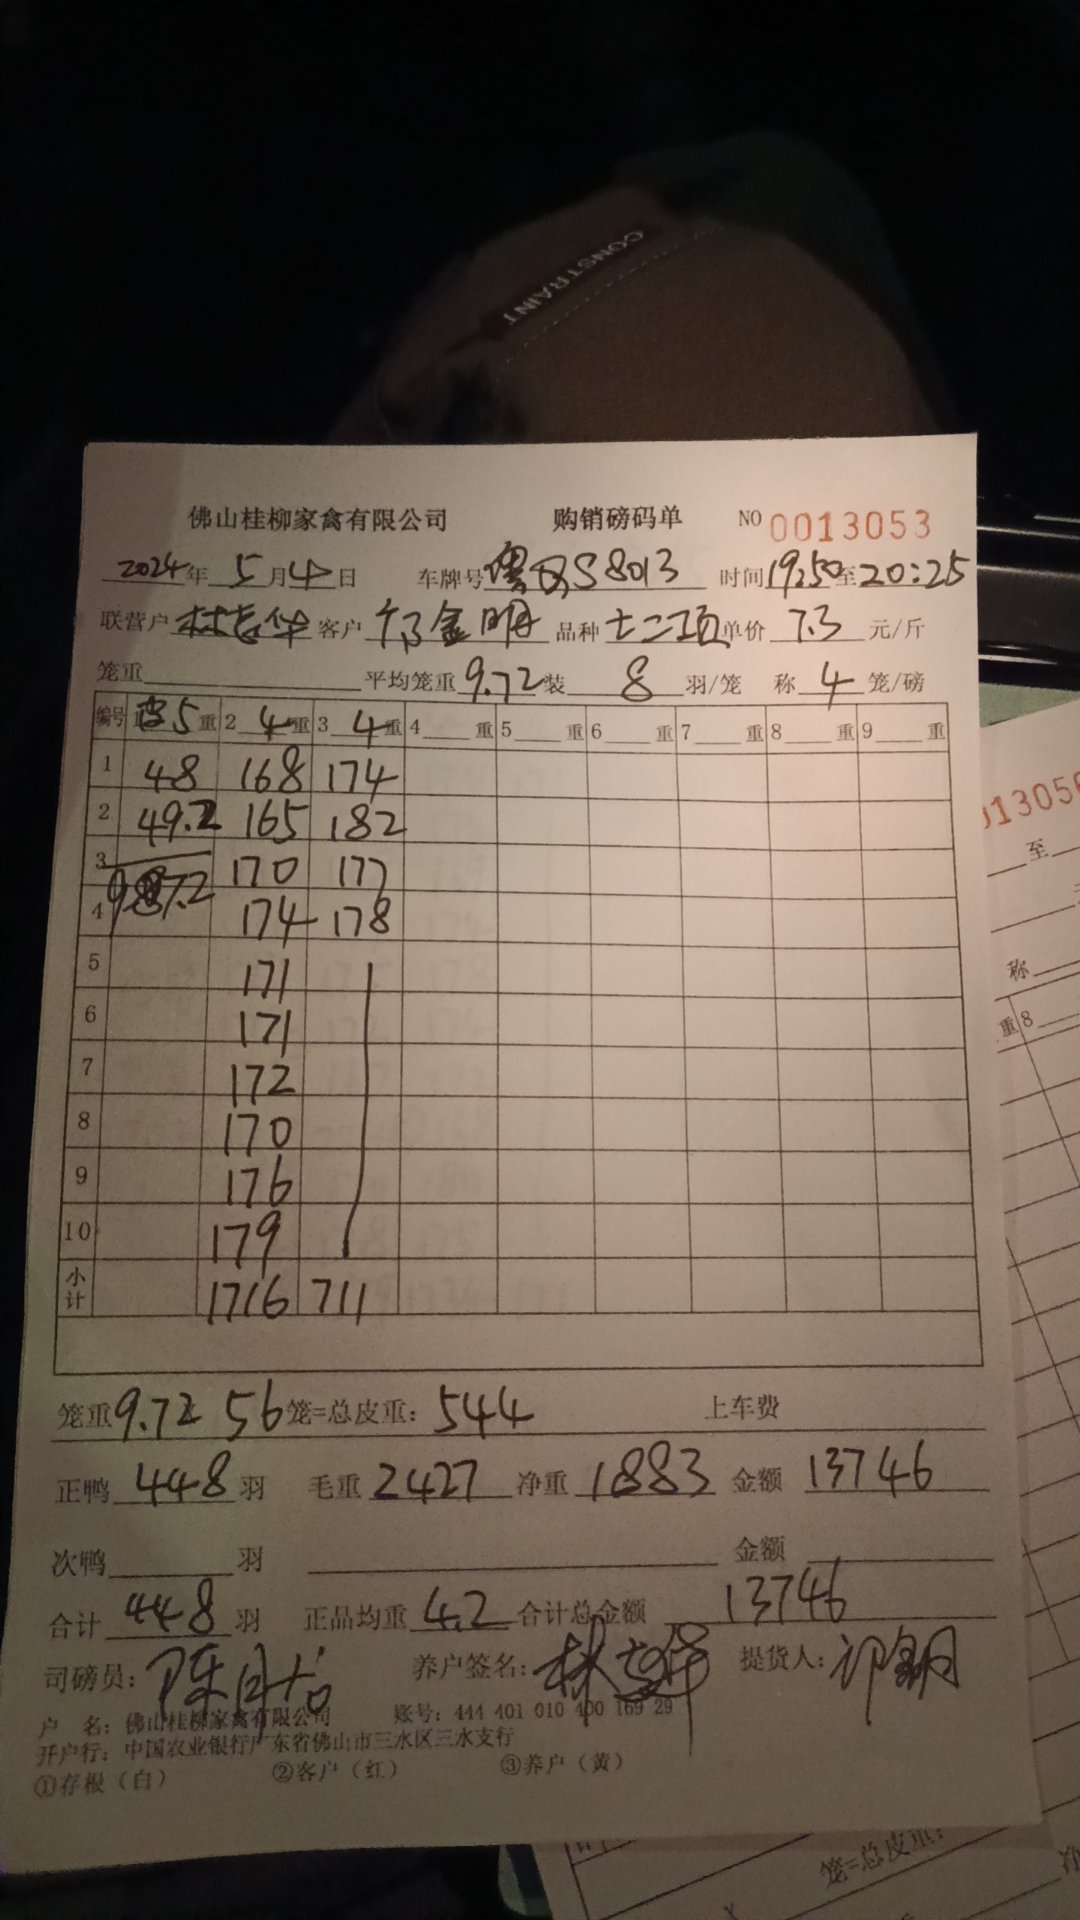 CONSTRAINT
佛山桂柳家禽有限公司 购销磅码单 NO 0013053
2024年 5月 4日 车牌号 粤 S8013 时间 19:50 至 20:25
联营户 林志华 客户 金明 品种 七二项 单价 7.3 元/斤
笼重 平均笼重 9.72 装 8 羽/笼 称 4 笼/磅
编号 5 重 2 4 重 3 4 重 4 重 5 重 6 重 7 重 8 重 9 重
1 48 168 174
2 49.2 165 182
3 170 177
4 97.2 174 178
5 171
6 171
7 172
8 170
9 176
10 179
小计 1716 711
笼重 9.72 56 笼=总皮重: 544 上车费
正鸭 448 羽 毛重 2427 净重 1883 金额 13746
次鸭 羽 金额
合计 448 羽 正品均重 4.2 合计总金额 13746
司磅员: 陈月 养户签名: 林志华 提货人:
户 名: 佛山桂柳家禽有限公司 账号: 444 401 010 400 169 29
开户行: 中国农业银行广东省佛山市三水区三水支行
①存根(白) ②客户(红) ③养户(黄)
至
称
重 8
笼=总皮重:
净